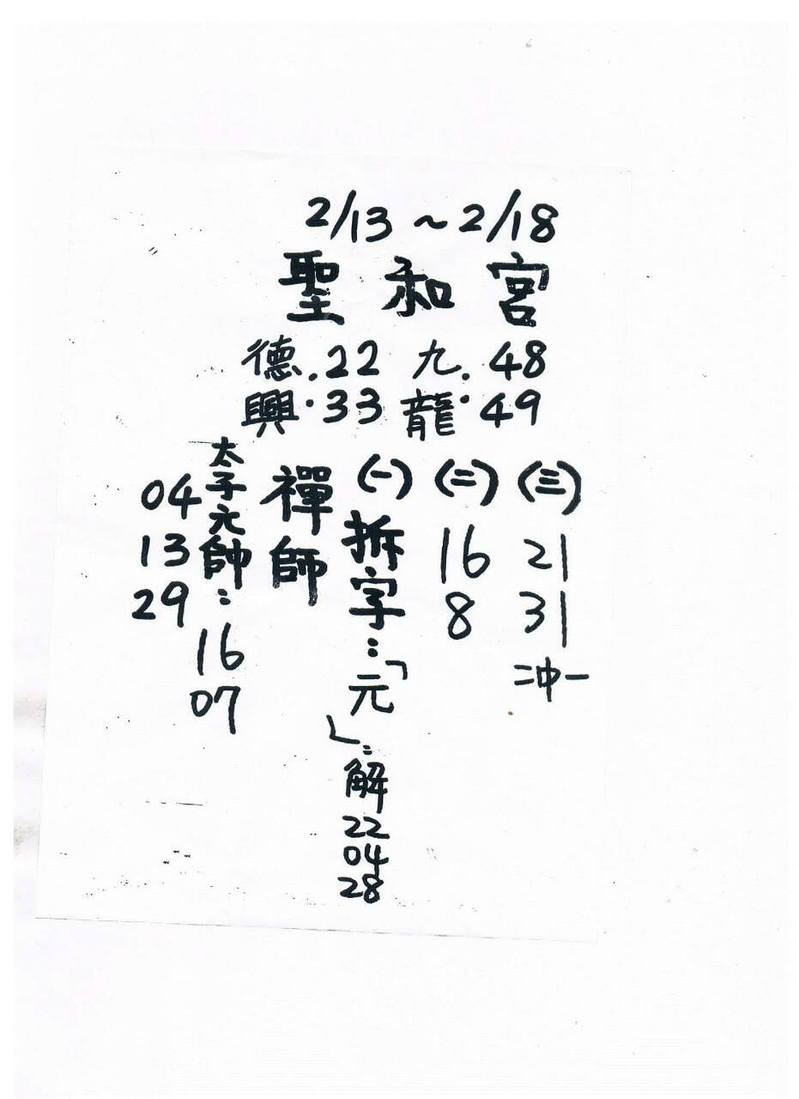 2/13 ~ 2/18
聖和宮
德.22 九.48
興.33 龍.49
(三) 21 31 二沖一
(二) 16 8
(一) 拆字:「元」:解 22 04 28
禪師
太子元帥: 16 07
04 13 29